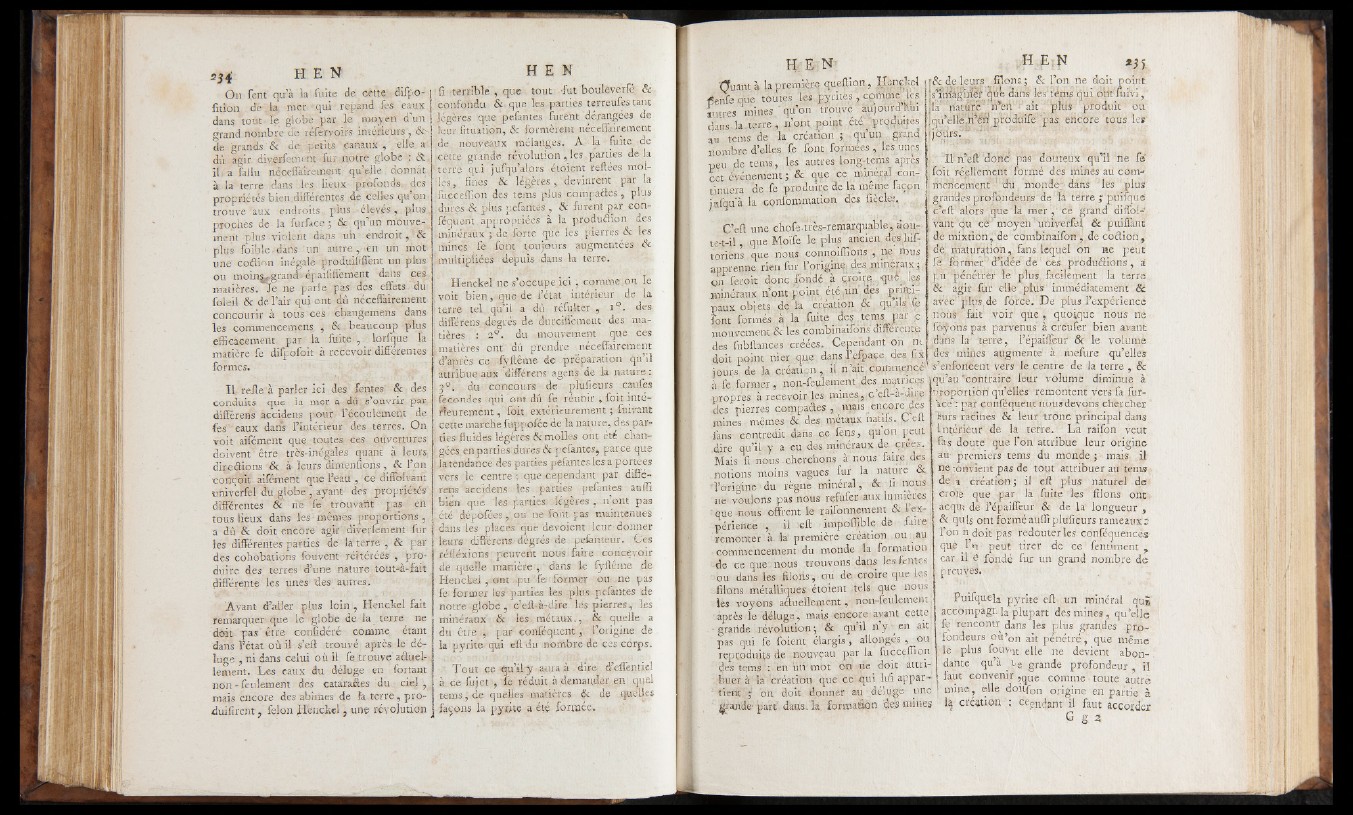 234 HEN
On sent qu'à la suite de cette dispo-
sition de la mer qui répand ses eaux
dans tout le globe par le moyen d'un
grand nombre de réservoirs intérieurs, &
de grands & de petits canaux, elle a
dû agir diversement sur notre globe ; &
il a fallu nécessairement qu'elle donnat
à la terre dans les lieux profonds des
propriétés bien différentes de celles qu'on
trouve aux endroits plus élevés, plus
proches de la surface ; & qu'un mouve-
ment plus violent dans un endroit, &
plus foible dans un autre, en un mot
une coction inégale produisissent un plus
ou moins grand épaississement dans ces
matières. Je ne parle pas des effets du
soleil & de l'air qui ont dû nécessairement
concourir à tous ces changemens dans
les commencemens, & beaucoup plus
efficacement par la suite, lorsque la
matière se disposoit à recevoir différentes
formes.
Il reste à parler ici des fentes & des
conduits que la mer a dû s'ouvrir par
différens accidens pour l'écoulement de
ses eaux dans l'intérieur des terres. On
voit aisément que toutes ces ouvertures
doivent être très-inégales quant à leurs
directions & à leurs dimensions, & l'on
conçoit aisément que l'eau, ce dissolvant
universel du globe, ayant des propriétés
différentes & ne se trouvant pas en
tous lieux dans les mêmes proportions,
a dû & doit encore agir diversement sur
les différentes parties de la terre, & par
des cohobations souvent réitérées, pro-
duire des terres d'une nature tout-à-fait
différente les unes des autres.
Avant d'aller plus loin, Henckel fait
remarquer que le globe de la terre ne
doit pas être considéré comme étant
dans l'état où il s'est trouvé après le dé-
luge, ni dans celui où il se trouve actuel-
lement. Les eaux du déluge en sortant
non-seulement des cataractes du ciel,
mais encore des abimes de la terre, pro-
duisirent, selon Henckel, une révolution
HEN
si terrible, que tout fut bouleversé &
confondu & que les parties terreuses tant
légères que pesantes furent dérangées de
leur situation, & formèrent nécessairement
de nouveaux mélanges. A la suite de
cette grande révolution, les parties de la
terre qui jusqu'alors étoient restées mol-
les, fines & légères, devinrent par la
succession des tems plus compactes, plus
dures & plus pesantes, & furent par con-
séquent appropriées à la production des
minéraux ; de sorte que les pierres & les
mines se sont toujours augmentées &
multipliées depuis dans la terre.
Henckel ne s'occupe ici, comme on le
voit bien, que de l'état intérieur de la
terre tel qu'il a dû résulter, 1°. des
différens degrés de durcissement des ma-
tières : 2°. du mouvement que ces
matières ont dû prendre nécessairement
d'après ce systême de préparation qu'il
attribue aux différens agens de la nature :
3°. du concours de plusieurs causes
secondes qui ont dû se réunir, soit inté-
rieurement, soit extérieurement ; suivant
cette marche supposée de la nature, des par-
ties fluides légères & molles ont été chan-
gées en parties dures & pesantes, parce que
la tendance des parties pesantes les a portées
vers le centre : que cependant par diffé-
rens accidens les parties pesantes aussi
bien que les parties légères, n'ont pas
été déposées, ou ne sont pas maintenues
dans les places que devoient leur donner
leurs différens dégrés de pesanteur. Ces
réfléxions peuvent nous faire concevoir
de quelle manière, dans le systême de
Henckel, ont pu se former ou ne pas
se former les parties les plus pesantes de
notre globe, c'est-à-dire les pierres, les
minéraux & les métaux, & quelle a
du être, par conséquent, l'origine de
la pyrite qui est du nombre de ces corps.
Tout ce qu'il y aura à dire d'essentiel
à ce sujet, se réduit à demander en quel
tems, de quelles matières & de quelles
façons la pyrite a été formée.
HEN
Quant à la première question, Henckel
pense que toutes les pyrites, comme les
autres mines qu'on trouve aujourd'hui
dans la terre, n'ont point été produites
au tems de la création ; qu'un grand
nombre d'elles se sont formées, les unes
peu de tems, les autres long-tems après
cet événement ; & que ce minéral con-
tinuera de se produire de la même façon
jusqu'à la consommation des siècles.
C'est une chose très-remarquable, ajou-
te-t-il, que Moïse le plus ancien des his-
toriens que nous connoissions, ne nous
apprenne rien sur l'origine des minéraux ;
on seroit donc fondé à croire que les
minéraux n'ont point été un des princi-
paux objets de la création & qu'ils se
sont formés à la suite des tems par e
mouvement & les combinaisons différente
des substances créées. Cependant on ne
doit point nier que dans l'espace des six
jours de la création, il n'ait commencé
à se former, non-seulement des matrices
propres à recevoir les mines, c'est-à-dire
des pierres compactes, mais encore des
mines mêmes & des métaux natifs. C'est
sans contredit dans ce sens, qu'on peut
dire qu'il y a eu des minéraux de créés.
Mais si nous cherchons à nous faire des
notions moins vagues sur la nature &
l'origine du règne minéral, & si nous
ne voulons pas nous refuser aux lumières
que nous offrent le raisonnement & l'ex-
périence, il est impossible de faire
remonter à la première création ou au
commencement du monde la formation
de ce que nous trouvons dans les fentes
ou dans les filons, ou de croire que les
filons métalliques étoient tels que nous
les voyons actuellement, non-seulement
après le déluge, mais encore avant cette
grande révolution ; & qu'il n'y en ait
pas qui se soient élargis, allongés, ou
reproduits de nouveau par la succession
des tems : en un mot on ne doit attri-
buer à la création que ce qui lui appar-
tient ; on doit donner au déluge une
grande part dans la formation des mines
HEN 235
& de leurs filons ; & l'on ne doit point
s'imaginer que dans les tems qui ont suivi,
la nature n'en ait plus produit ou
qu'elle n'en produise pas encore tous les
jours.
Il n'est donc pas douteux qu'il ne se
soit réellement formé des mines au com-
mencement du monde dans les plus
grandes profondeurs de la terre ; puisque
c'est alors que la mer, ce grand dissol-
vant ou ce moyen universel & puissant
de mixtion, de combinaison, de coction,
de maturation, sans lequel on ne peut
se former d'idée de ces productions, a
pu pénétrer le plus facilement la terre
& agir sur elle plus immédiatement &
avec plus de force. De plus l'expérience
nous fait voir que, quoique nous ne
soyons pas parvenus à creuser bien avant
dans la terre, l'épaisseur & le volume
des mines augmente à mesure qu'elles
s'enfoncent vers le centre de la terre, &
qu'au contraire leur volume diminue à
proportion qu'elles remontent vers sa sur-
face : par conséquent nous devons chercher
leurs racines & leur tronc principal dans
l'intérieur de la terre. La raison veut
sans doute que l'on attribue leur origine
au premiers tems du monde ; mais il
ne convient pas de tout attribuer au tems
de a création ; il est plus naturel de
croire que par la suite les filons ont
acqui de l'épaisseur & de la longueur,
& quils ont formé aussi plusieurs rameaux :
l'on n doit pas redouter les conséquences
que l'on peut tirer de ce sentiment,
car il e fondé sur un grand nombre de
preuves.
Puisque la pyrite est un minéral qui
accompagne la plupart des mines, qu'elle
se rencontre dans les plus grandes pro-
fondeurs où on ait pénétré, que même
le plus souvent elle ne devient abon-
dante qu'à une grande profondeur, il
faut convenir que comme toute autre
mine, elle doit son origine en partie à
la création ; cependant il faut accorder
G g 2